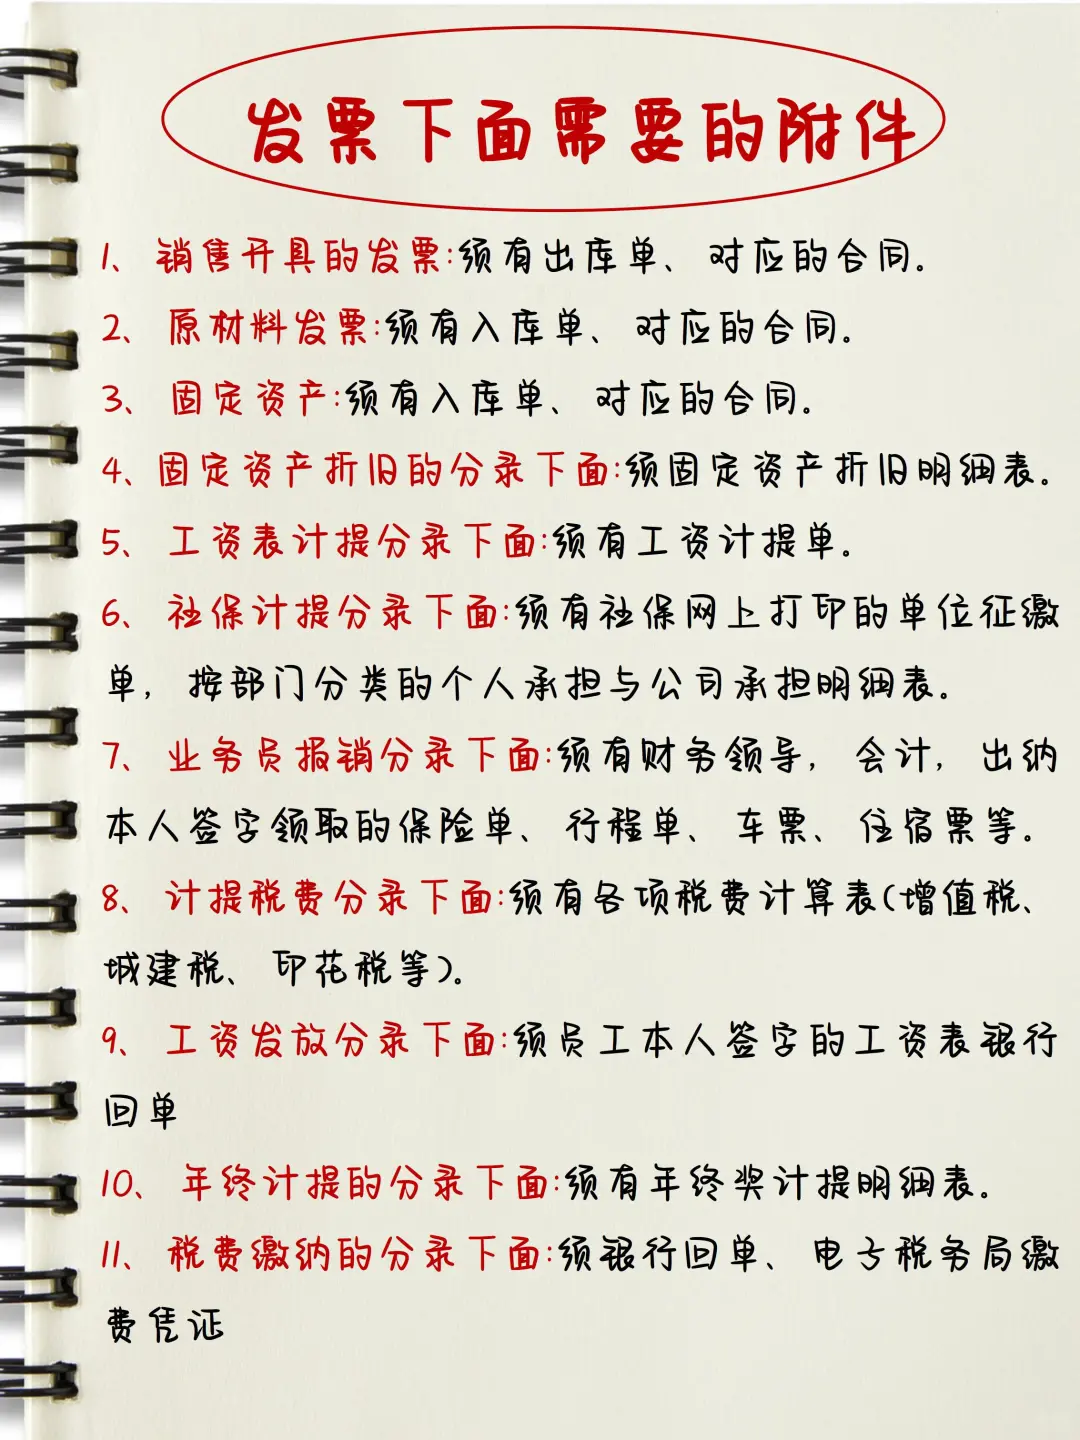 发票下面需要的附件
1、销售开具的发票:须有出库单、对应的合同。
2、原材料发票:须有入库单、对应的合同。
3、固定资产:须有入库单、对应的合同。
4、固定资产折旧的分录下面:须固定资产折旧明细表。
5、工资表计提分录下面:须有工资计提单。
6、社保计提分录下面:须有社保网上打印的单位征缴
单,按部门分类的个人承担与公司承担明细表。
7、业务员报销分录下面:须有财务领导,会计,出纳
本人签字领取的保险单、行程单、车票、住宿票等。
8、计提税费分录下面:须有各项税费计算表(增值税、
城建税、印花税等)。
9、工资发放分录下面:须员工本人签字的工资表银行
回单
10、年终计提的分录下面:须有年终奖计提明细表。
11、税费缴纳的分录下面:须银行回单、电子税务局缴
费凭证